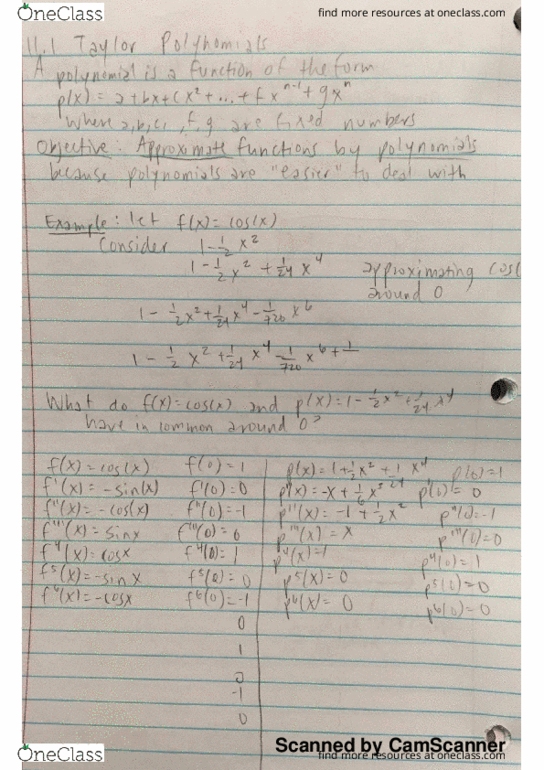 OneClass
find more resources at oneclass.com
11.1 Taylor Polynomials
A polynomial is a function of the form
p(x) = a+bx+cx²+...+fxⁿ⁻¹+gxⁿ
where a,b,c, f,g are fixed numbers
Objective: Approximate functions by polynomials
because polynomials are "easier" to deal with
Example: let f(x)=cos(x)
Consider 1-1/2 x²
1-1/2 x² + 1/24 x⁴ approximating cos(
around 0
1 - 1/2 x² + 1/24 x⁴ - 1/720 x⁶
1 - 1/2 x² + 1/24 x⁴ - 1/720 x⁶ + 1/
What do f(x)=cos(x) and p(x)=1-1/2 x²+1/24 x⁴
have in common around 0?
f(x)=cos(x) f(0)=1 p(x)=1+1/2 x²+1/24 x⁴ p(0)=1
f'(x)=-sin(x) f'(0)=0 p'(x)=-x+1/6 x³ p'(0)=0
f''(x)=-cos(x) f''(0)=-1 p''(x)=-1+1/2 x² p''(0)=-1
f'''(x)=sinx f'''(0)=0 p'''(x)=x p'''(0)=0
f⁴(x)=cosx f⁴(0)=1 p⁴(x)=1 p⁴(0)=1
f⁵(x)=-sinx f⁵(0)=0 p⁵(x)=0 p⁵(0)=0
f⁶(x)=-cosx f⁶(0)=-1 p⁶(x)=0 p⁶(0)=0
0
1
0
-1
0
Scanned by CamScanner
OneClass
find more resources at oneclass.com